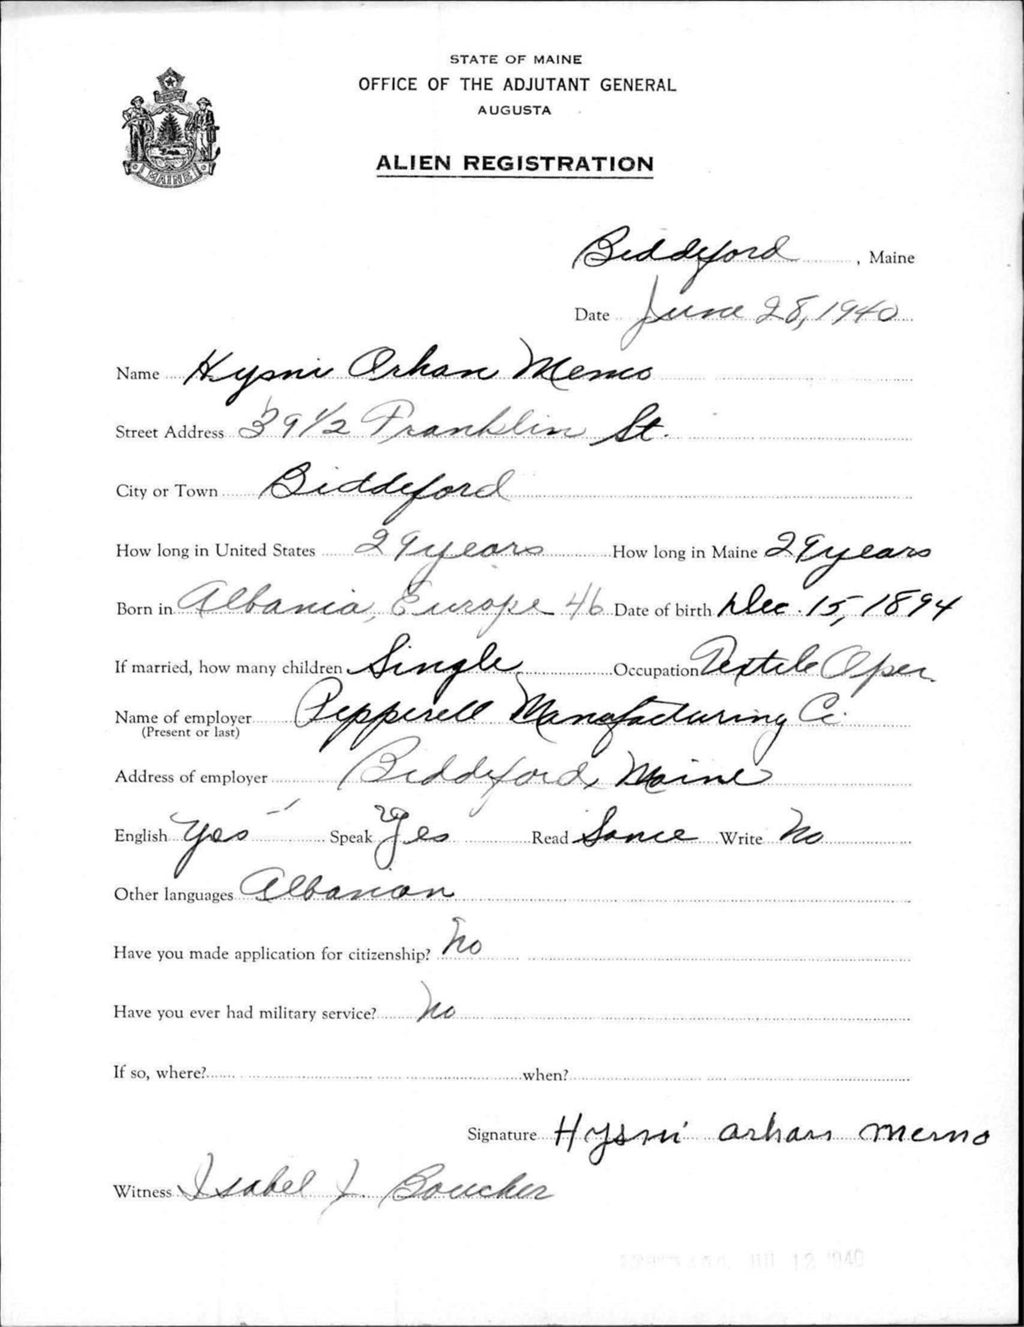 STATE OF MAINE
OFFICE OF THE ADJUTANT GENERAL
AUGUSTA
ALIEN REGISTRATION
MAINE
Biddeford, Maine
Date June 28, 1940
Name Hysni Orhan Memo
Street Address 39 1/2 Franklin St.
City or Town Biddeford
How long in United States 29 years How long in Maine 29 years
Born in Albania, Europe 46 Date of birth Dec. 15, 1894
If married, how many children Single Occupation Textile Oper.
Name of employer Pepperell Manufacturing Co.
(Present or last)
Address of employer Biddeford, Maine
English Yes Speak Yes Read Some Write No
Other languages Albanian
Have you made application for citizenship? No
Have you ever had military service? No
If so, where? when?
Signature Hysni Orhan Memo
Witness Isabel J. Boucher
12 1940